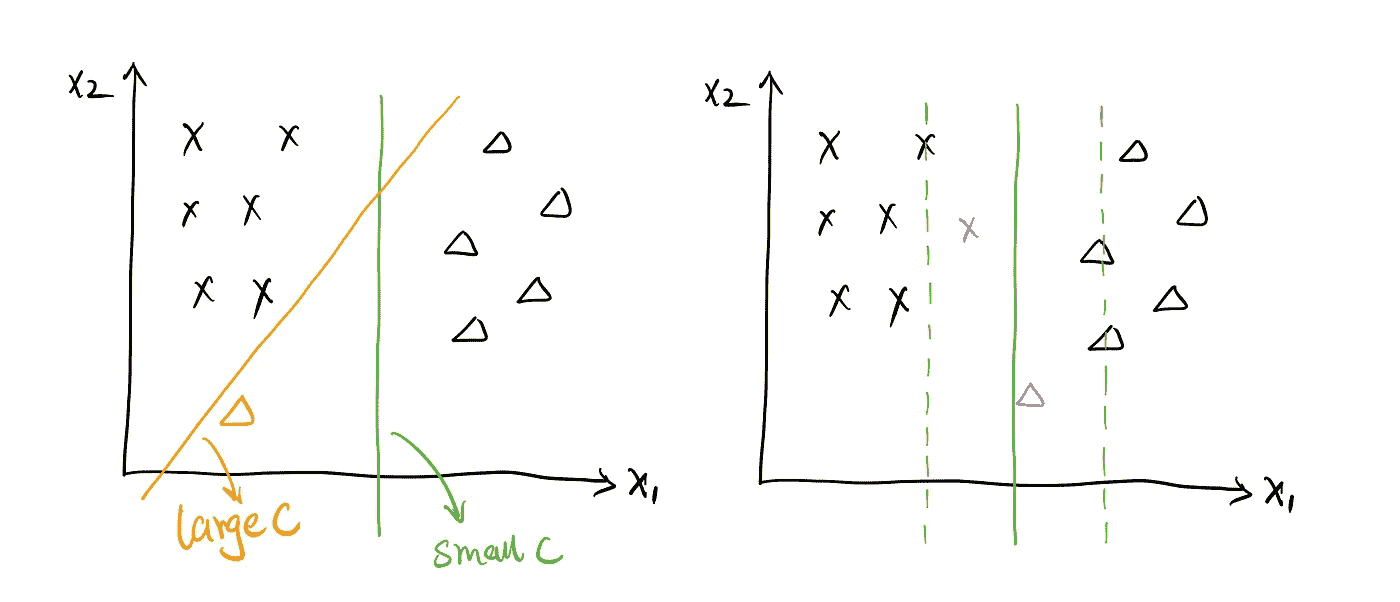 x2
x1
large C
small C
x2
x1